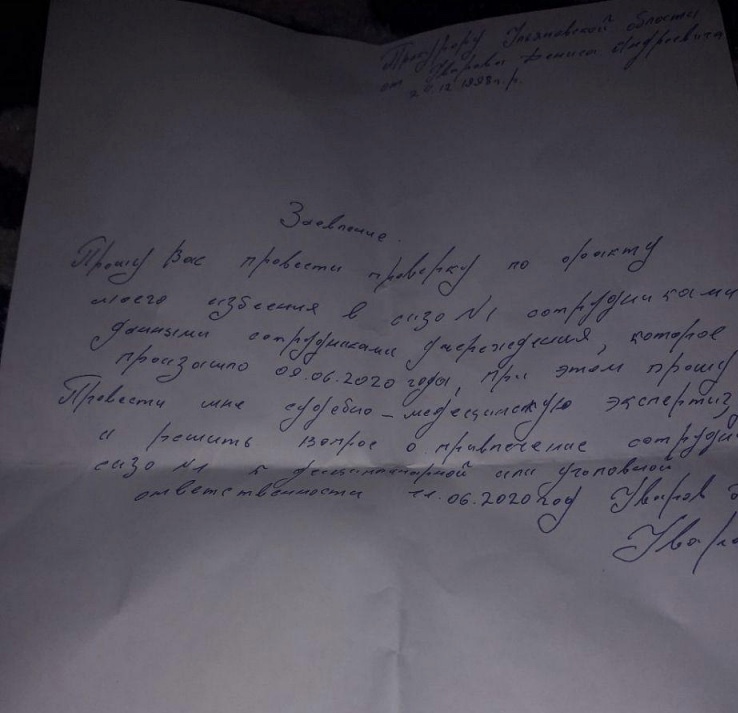 Прокурору Ульяновской области
от Уварова Дениса Андреевича
20.12.1998г.р.
Заявление.
Прошу Вас провести проверку по факту
моего избиения в сизо №1 сотрудниками
данными сотрудниками учереждения, которое
произашло 09.06.2020 года, при этом прошу
Провести мне судебно-медецинскую экспертиз
и решить вопрос о привлечение сотрудни
сизо №1 к десциплинарной или уголовной
ответственности 11.06.2020 год Уваров
Увар